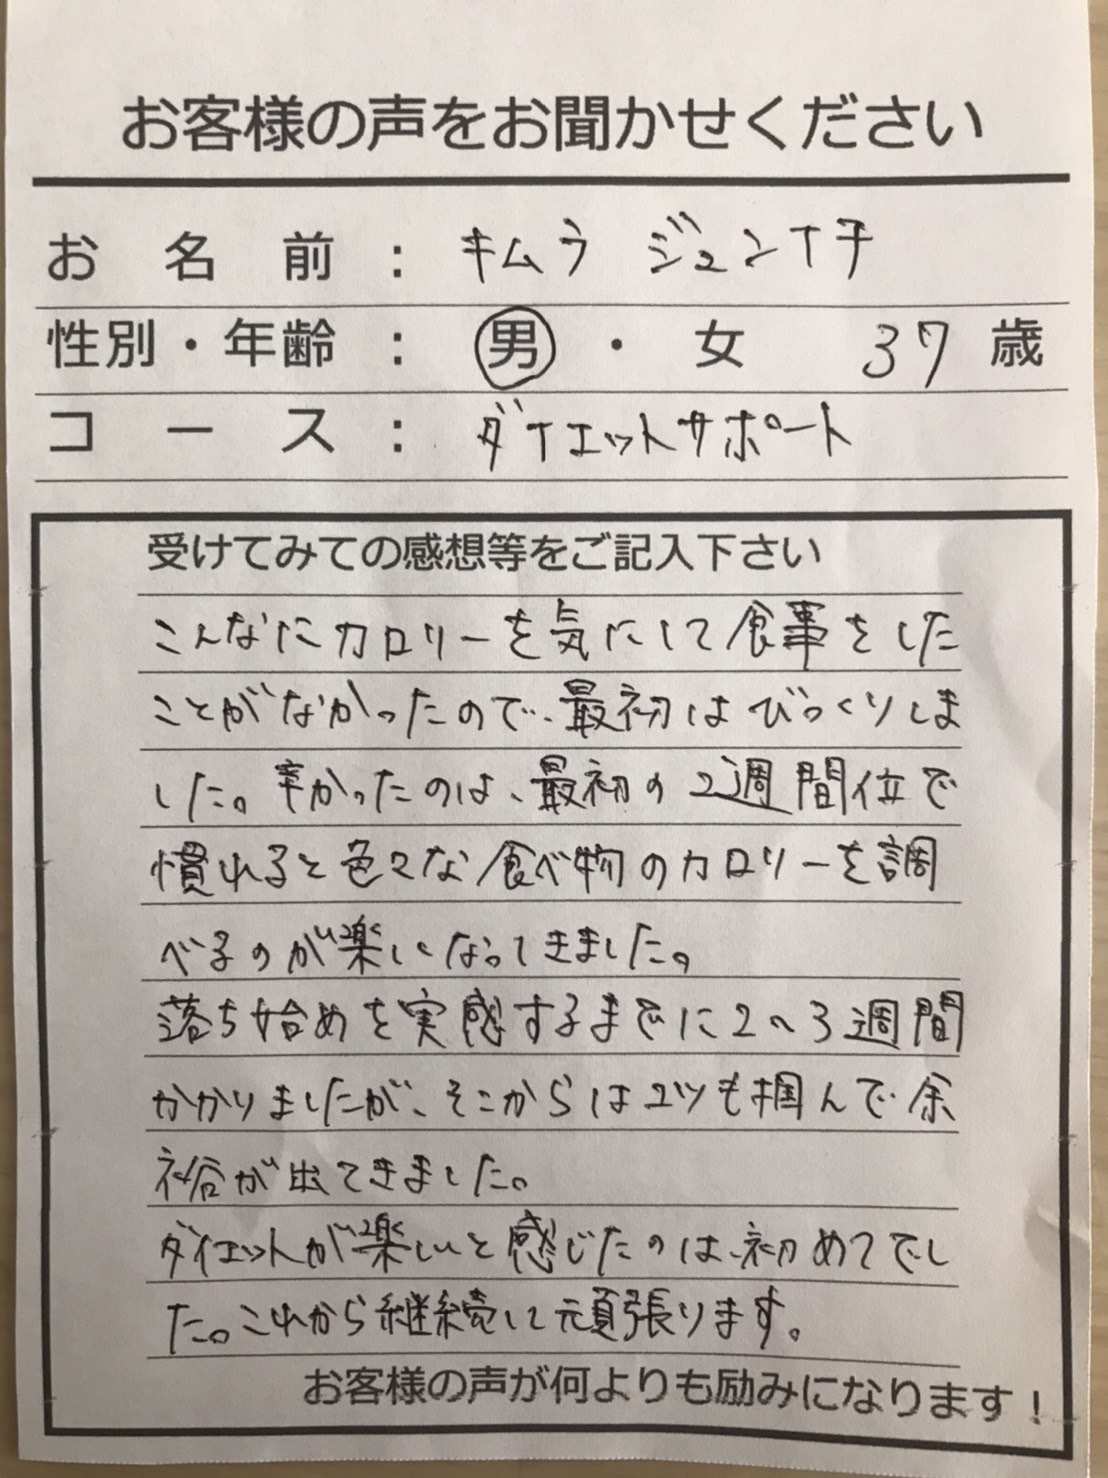 お客様の声をお聞かせください
お名前：キムラ ジュンイチ
性別・年齢：男・女 37歳
コース：ダイエットサポート
受けてみての感想等をご記入下さい
こんなにカロリーを気にして食事をした
ことがなかったので、最初はびっくりしま
した。辛かったのは、最初の2週間位で
慣れると色々な食べ物のカロリーを調
べるのが楽しくなってきました。
落ち始めを実感するまでに2〜3週間
かかりましたが、そこからはコツも掴んで余
裕が出てきました。
ダイエットが楽しいと感じたのは、初めてでし
た。これから継続して頑張ります。
お客様の声が何よりも励みになります！